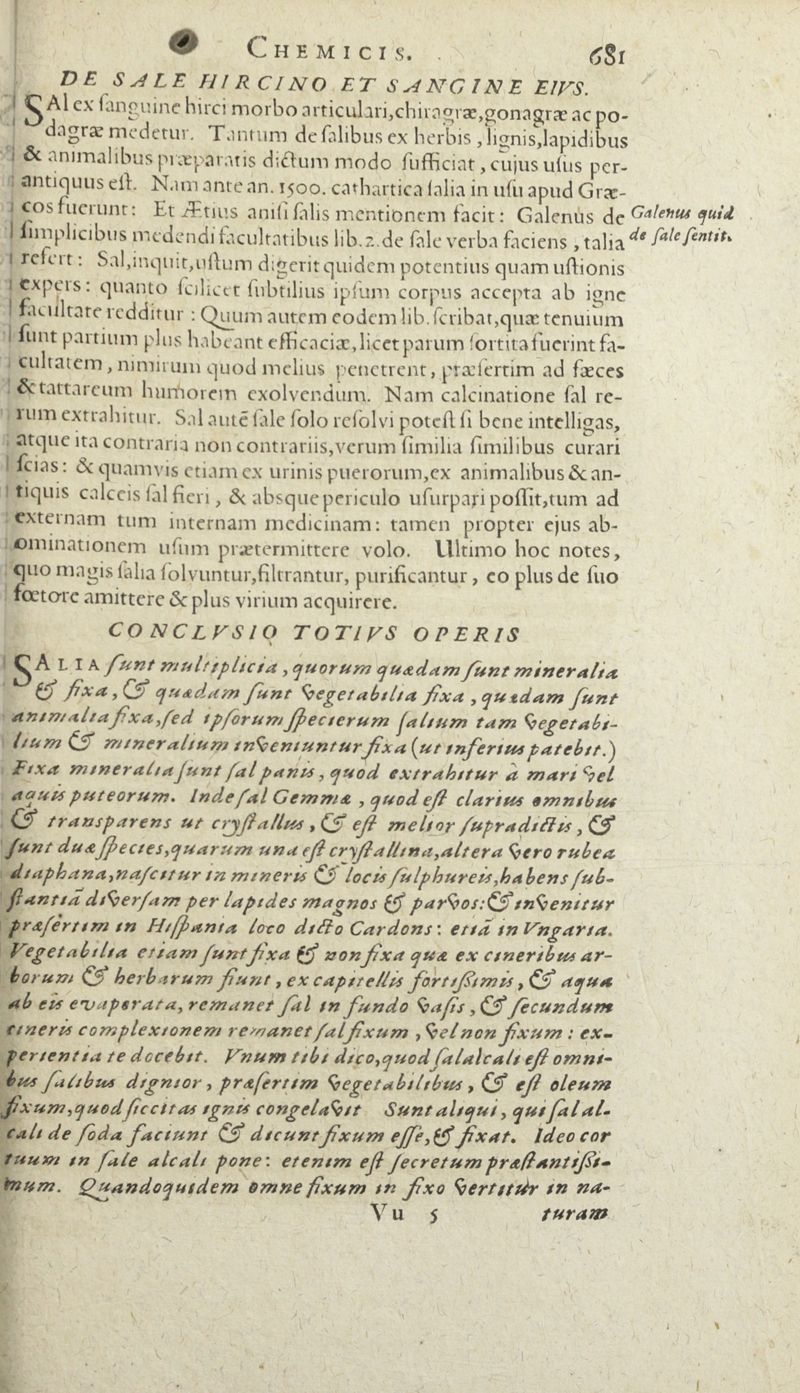 CHEMICIS. 681
DE SALE HIRCINO ET SANGINE EIVS.
SAl ex sanguine hirci morbo articulari,chiragræ,gonagræ ac po-
dagræ medetur. Tantum de salibus ex herbis , lignis,lapidibus
& animalibus præparatis dictum modo sufficiat , cujus usus per-
antiquus est. Nam ante an. 1500. cathartica salia in usu apud Græ-
cos fuerunt: Et Ætius anisi salis mentionem facit: Galenus de
Galenus quid
simplicibus medendi facultatibus lib.2.de sale verba faciens , talia
de sale sentit.
refert: Sal,inquit,ustum digerit quidem potentius quam ustionis
expers: quanto scilicet subtilius ipsum corpus accepta ab igne
facultate redditur : Quum autem eodem lib. scribat,quæ tenuium
sunt partium plus habeant efficaciæ,licet parum sortita fuerint fa-
cultatem , nimirum quod melius penetrent, præsertim ad fæces
& tattareum humorem exolvendum. Nam calcinatione sal re-
rum extrahitur. Sal autē sale solo resolvi potest si bene intelligas,
atque ita contraria non contrariis,verum similia similibus curari
scias: & quamvis etiam ex urinis puerorum,ex animalibus & an-
tiquis calceis sal fieri , & absque periculo usurpari possit,tum ad
externam tum internam medicinam: tamen propter ejus ab-
ominationem usum prætermittere volo. Ultimo hoc notes,
quo magis salia solvuntur,filtrantur, purificantur , eo plus de suo
fœtore amittere & plus virium acquirere.
CONCLVSIO TOTIVS OPERIS
SALIA sunt multiplicia , quorum quædam sunt mineralia
& fixa , & quædam sunt vegetabilia fixa , quædam sunt
animalia fixa,sed ipsorum specierum salium tam vegetabi-
lium & mineralium inveniuntur fixa (ut inferius patebit.)
Fixa mineralia sunt sal panis , quod extrahitur à mari vel
aquis puteorum. Inde sal Gemmæ , quod est clarius omnibus
& transparens ut crystallus , & est melior supradictis , &
sunt duæ species,quarum una est crystallina,altera vero rubea
diaphana,nascitur in mineris & locis sulphureis,habens sub-
stantiā diversam per lapides magnos & parvos:& invenitur
præsertim in Hispania loco dicto Cardons: etiā in Vngaria.
Vegetabilia etiam sunt fixa & non fixa quæ ex cineribus ar-
borum & herbarum fiunt , ex capitellis fortissimis , & aqua
ab eis evaporata, remanet sal in fundo vasis , & secundum
cineris complexionem remanet sal fixum , vel non fixum : ex-
perientia te docebit. Vnum tibi dico,quod sal alcali est omni-
bus salibus dignior , præsertim vegetabilibus , & est oleum
fixum,quod siccitas ignis congelavit Sunt aliqui , qui sal al-
cali de soda faciunt & dicunt fixum esse,& fixat. Ideo cor
tuum in sale alcali pone: etenim est secretum præstantissi-
mum. Quandoquidem omne fixum in fixo vertitur in na-
Vu 5 turam